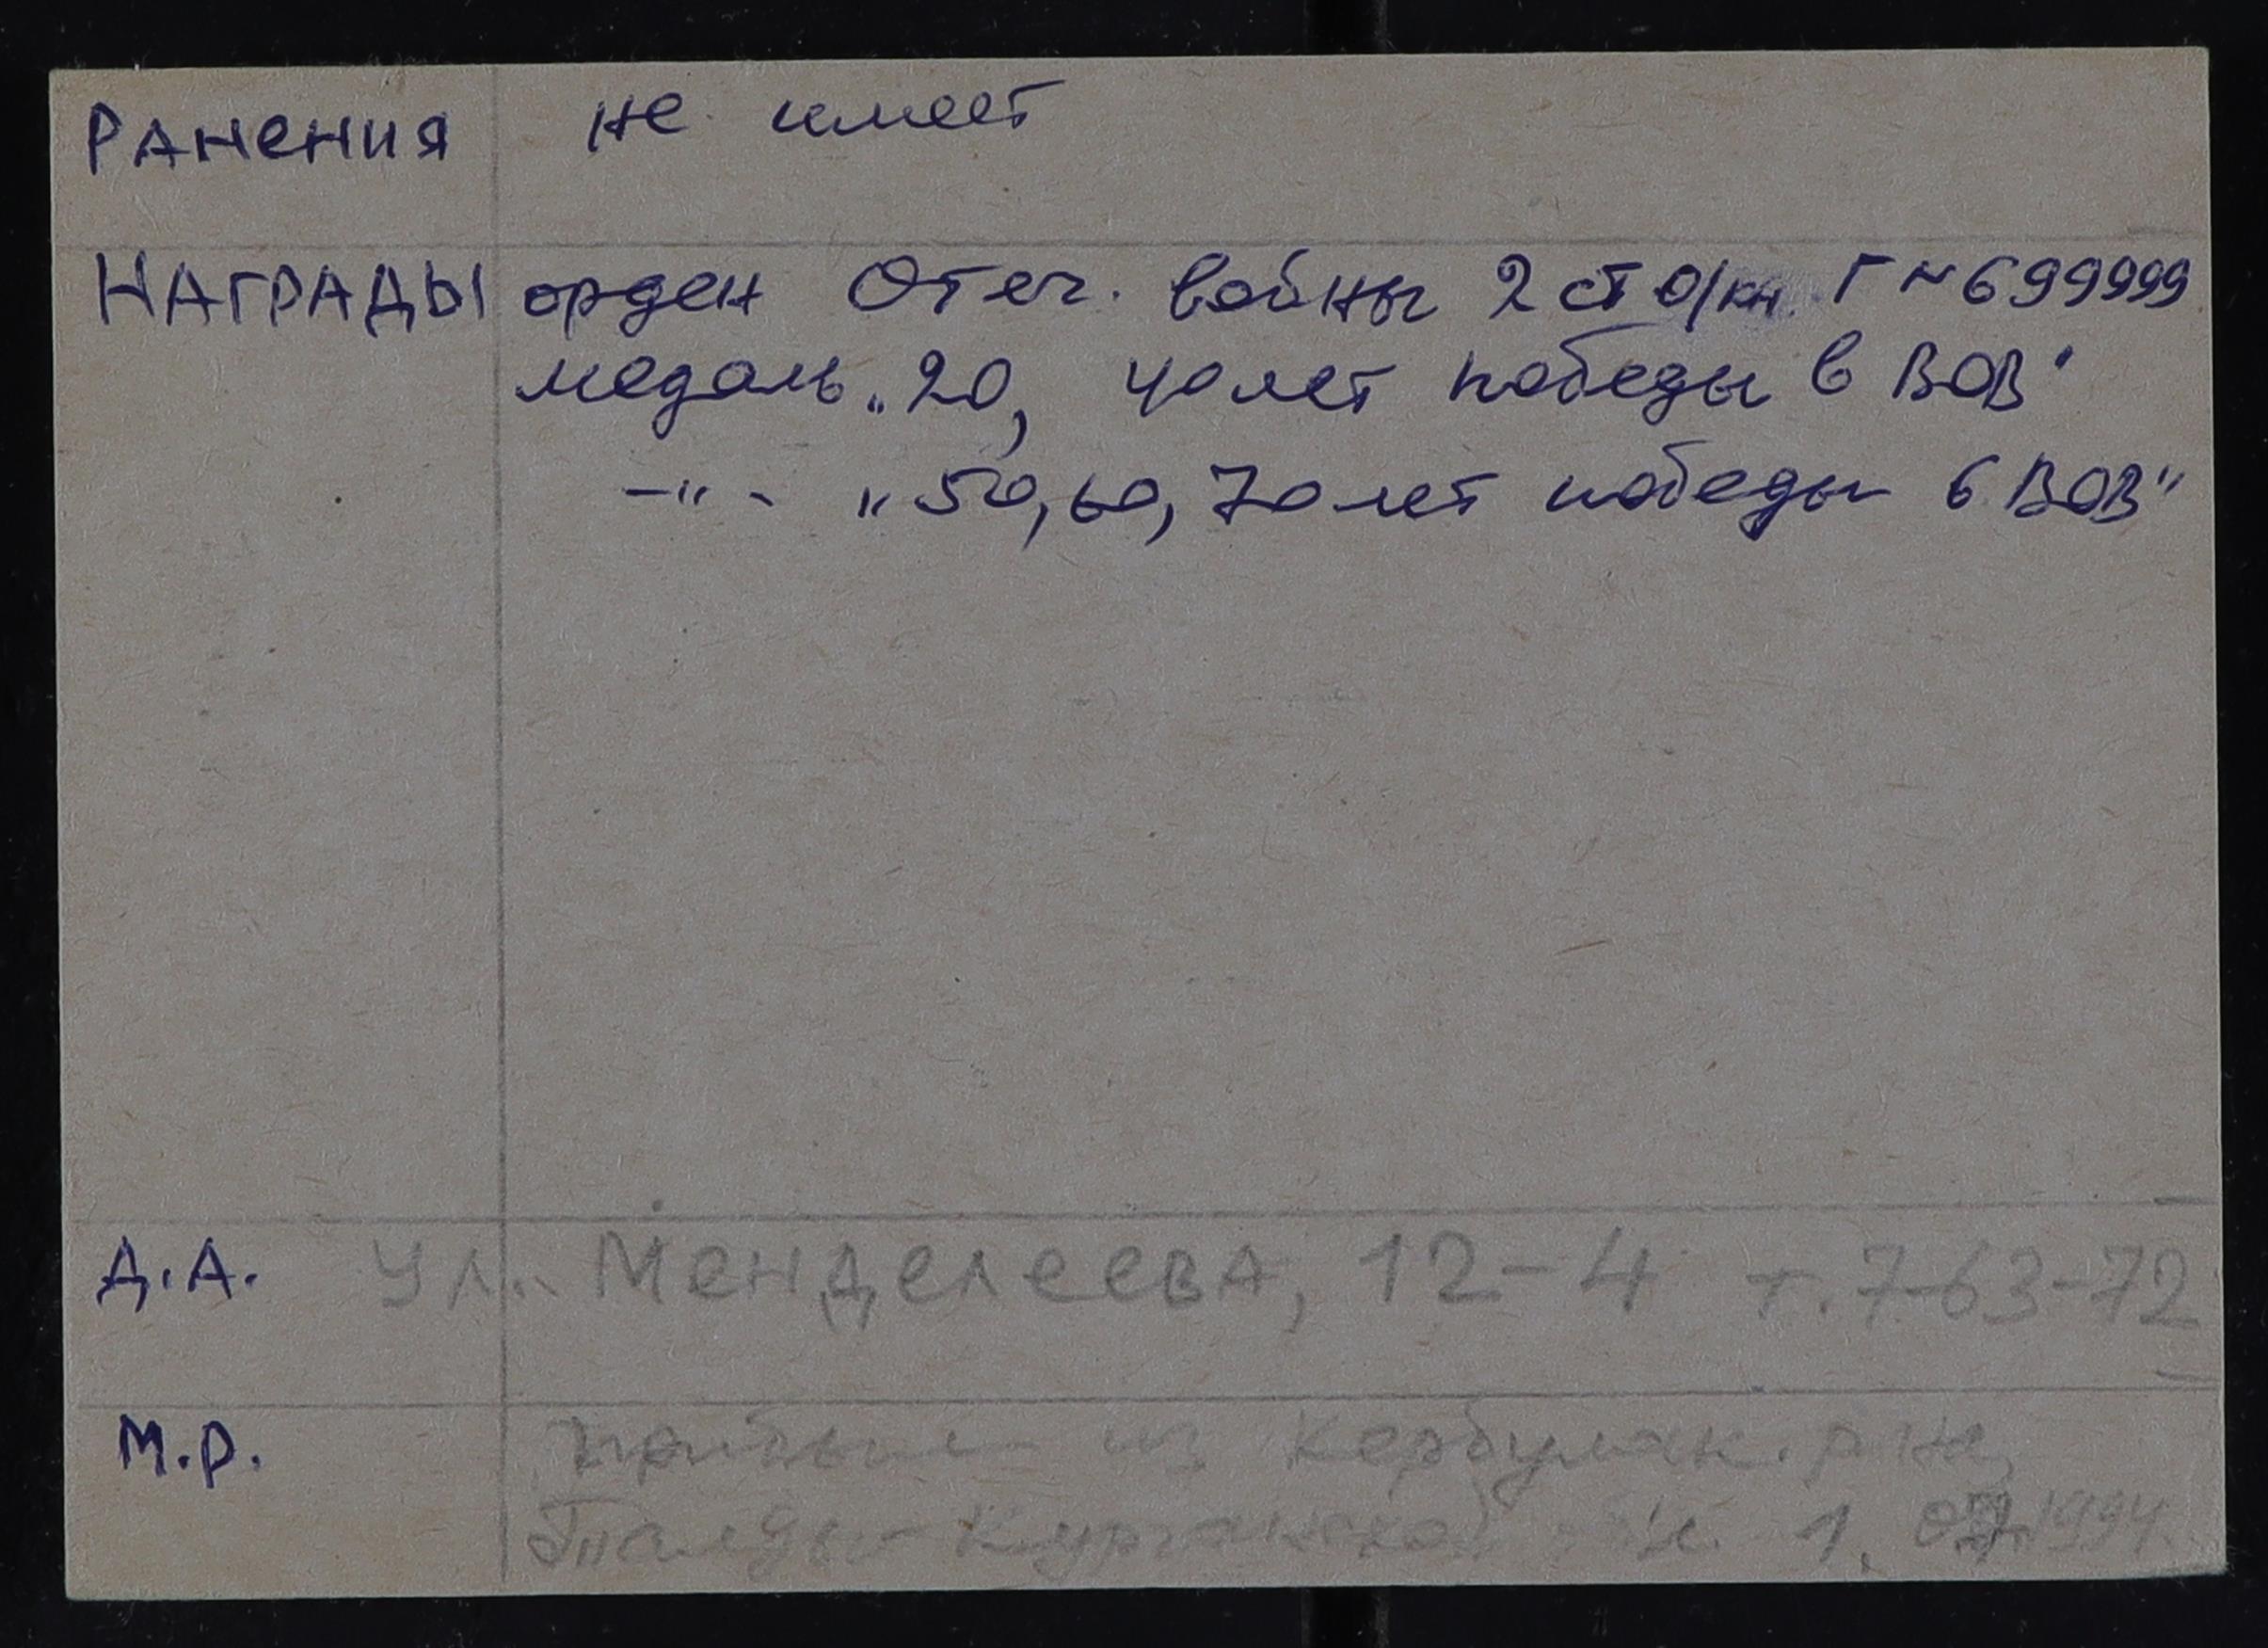 РАНЕНИЯ не имеет
НАГРАДЫ орден Отеч. войны 2 ст о/кн. Г № 699999
медаль „20, 40 лет победы в ВОВ"
-"- „50, 60, 70 лет победы в ВОВ"
Д.А. ул. Менделеева, 12-4 т. 7-63-72
М.Р. прибыл из Кербулак. р-на,
Талды-Курганской 1. 1994